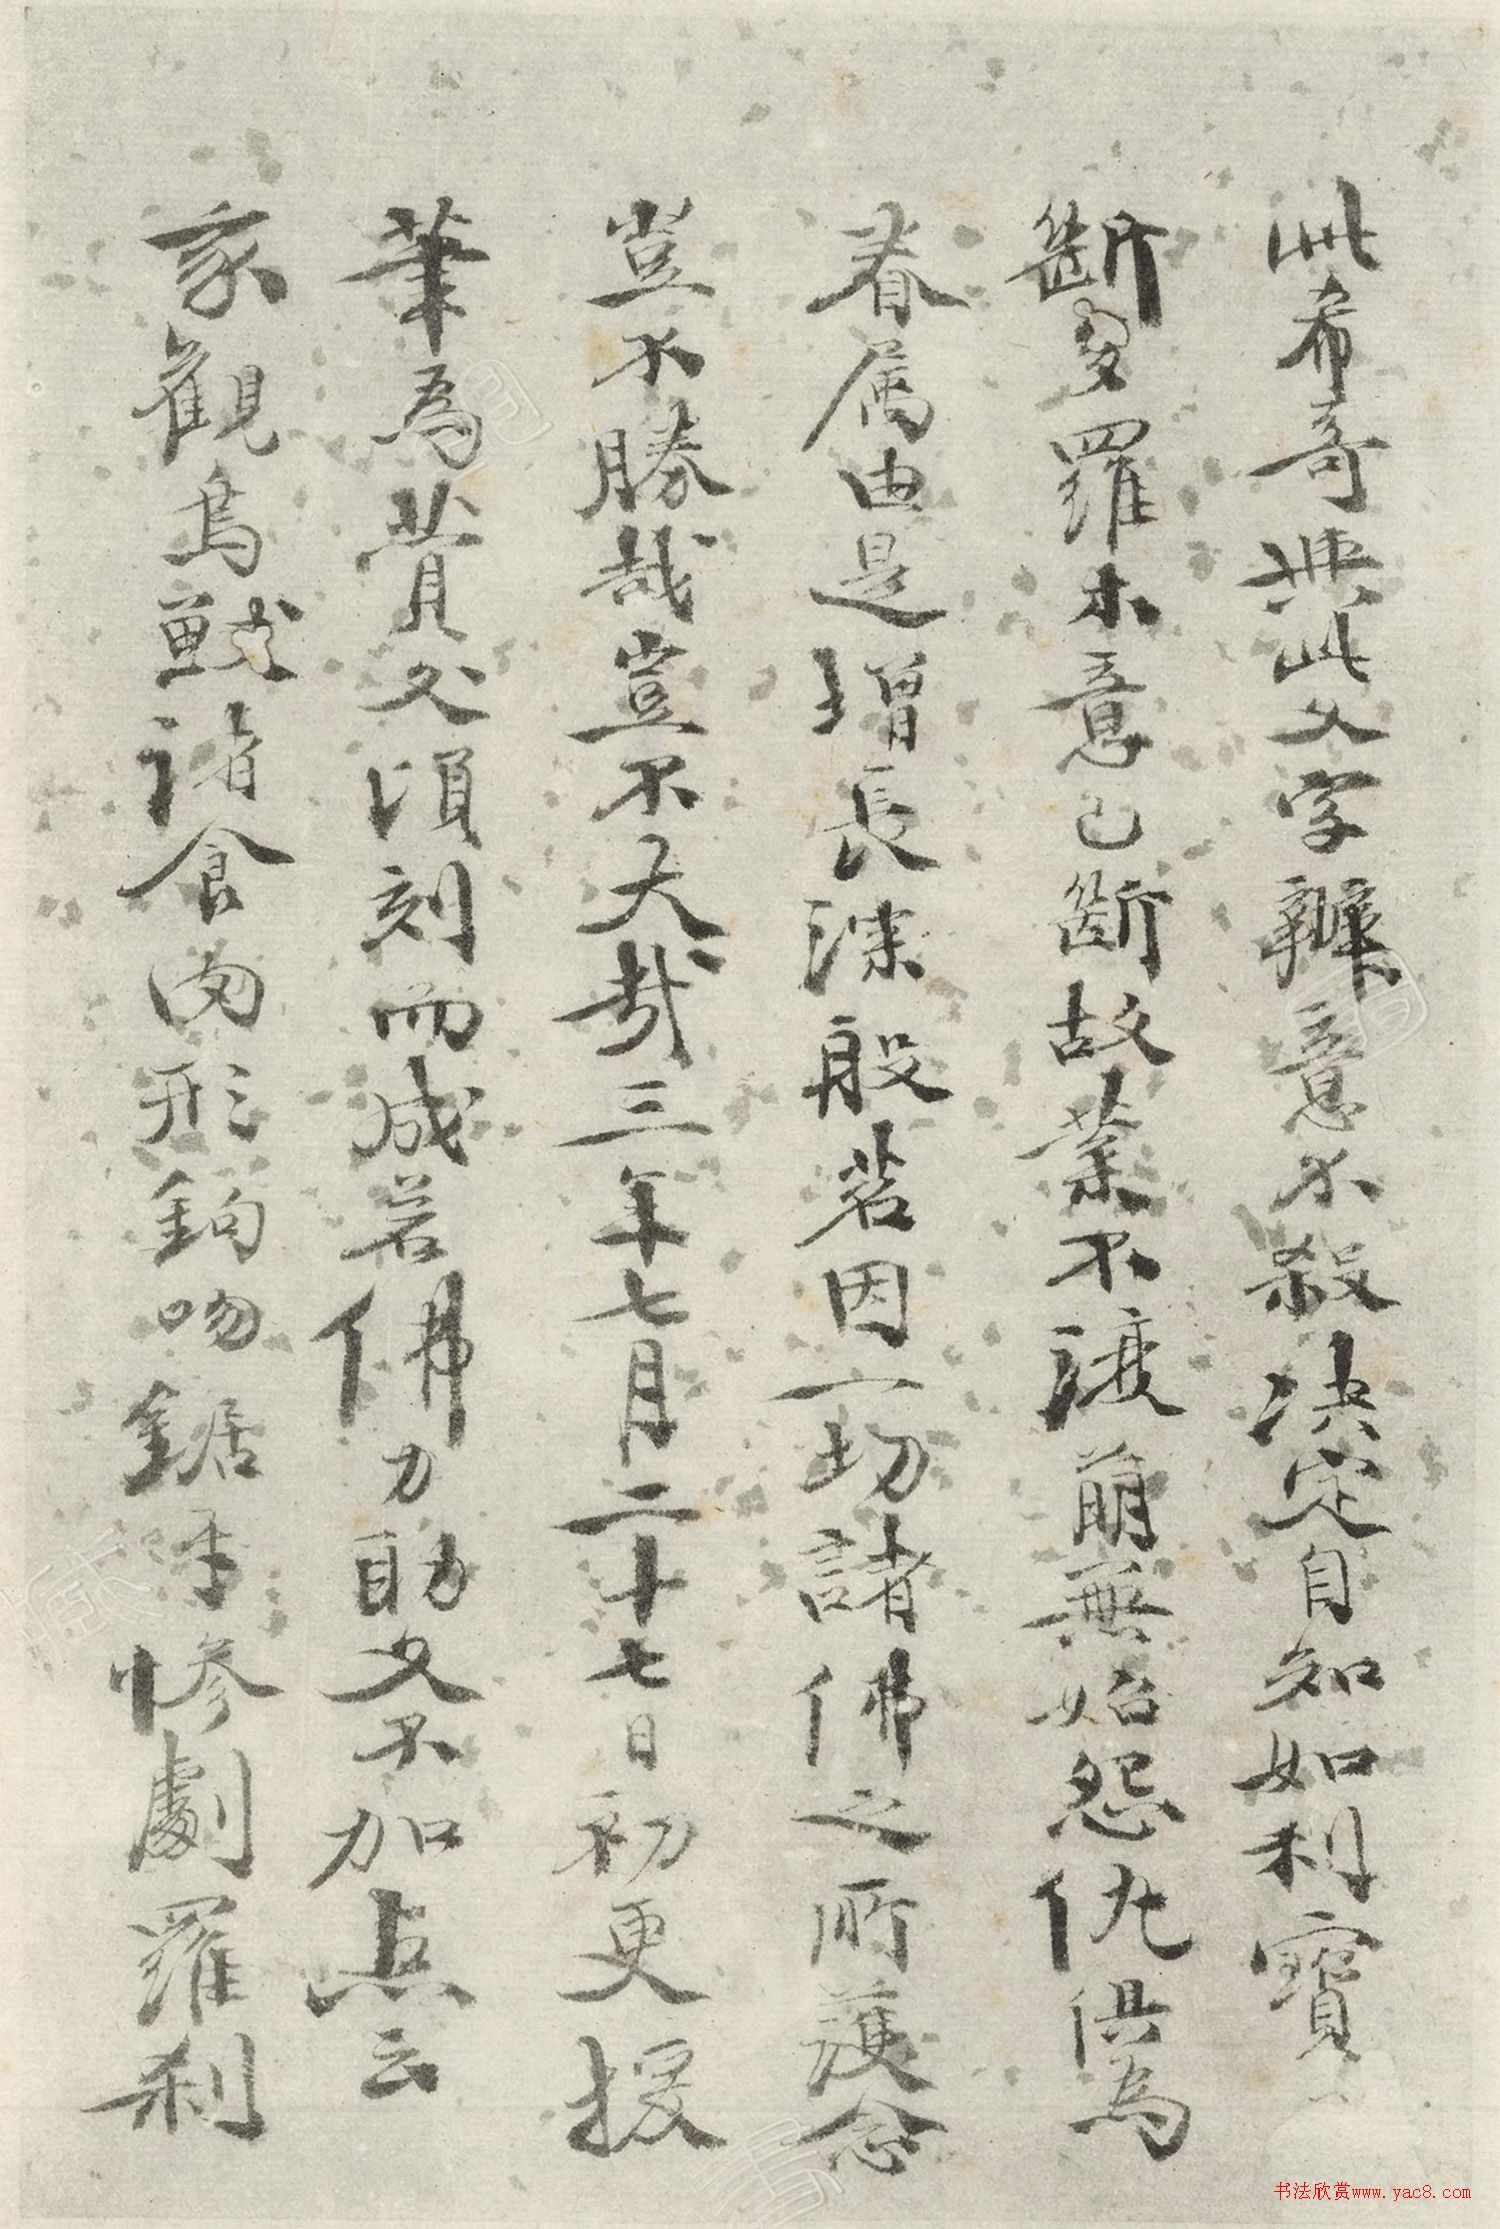 此希奇典此文字辦意不殺決定自知如利寶
斷多羅木意已斷故業不復萌無始怨仇俱為
眷属由是增長洙般若因一切諸佛之所護念
豈不勝哉豈不大哉三年七月二十七日初更援
筆為贊父湏刻而成若佛力助文不加点云
亥觀烏鯎諸食肉形鉤吻鋸牙慘劇羅刹
书法欣赏www.yac8.com